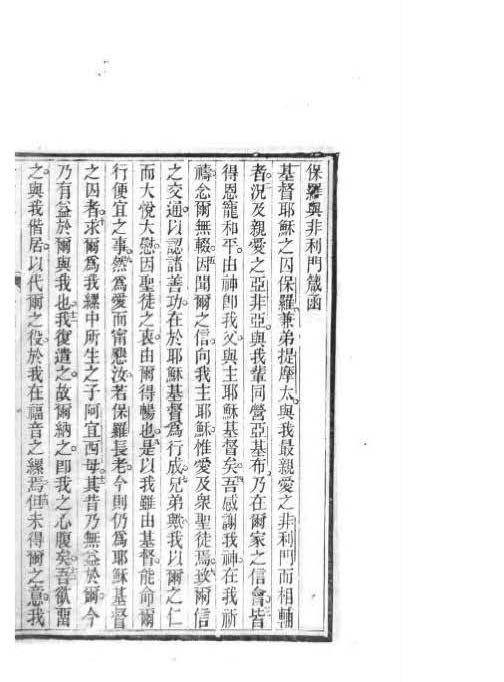 保羅與非利門箴函
基督耶穌之囚保羅兼弟提摩太與我最親愛之非利門而相軸
者況及親愛之亞非亞與我輩同營亞基布乃在爾家之信會皆
得恩寵和平由神卽我父與主耶穌基督矣吾感謝我神在我祈
禱念爾無輟因聞爾之信向我主耶穌惟愛及衆聖徒焉致爾信
之交通以認諸善功在於耶穌基督爲行成兄弟歟我以爾之仁
而大悅大慰因聖徒之衷由爾得暢也是以我雖由基督能命爾
行便宜之事然爲愛而甯懇汝若保羅長老今則仍爲耶穌基督
之囚者求爾爲我縲中所生之子阿宜西母其昔乃無益於爾今
乃有益於爾與我也我復遣之故爾納之卽我之心腹矣吾欲畱
之與我偕居以代爾之役於我在福音之縲焉但未得爾之意我